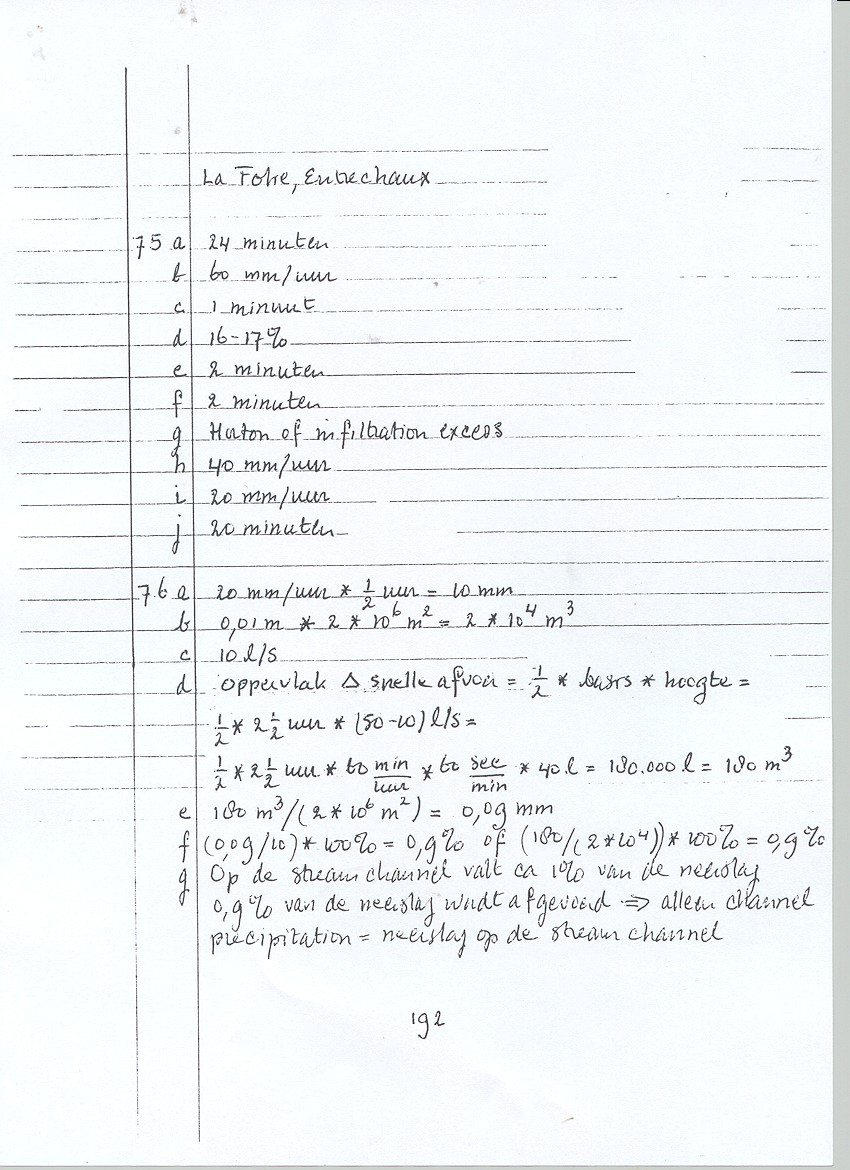 La Folie, Entrechaux
75 a 24 minuten
b 60 mm/uur
c 1 minuut
d 16-17%
e 2 minuten
f 2 minuten
g Horton of infiltration excess
h 40 mm/uur
i 20 mm/uur
j 20 minuten
76 a 20 mm/uur * 1/2 uur = 10 mm
b 0,01 m * 2 * 10⁶ m² = 2 * 10⁴ m³
c 10 l/s
d oppervlak Δ snelle afvoer = 1/2 * basis * hoogte =
1/2 * 2 1/2 uur * (50-10) l/s =
1/2 * 2 1/2 uur * 60 min/uur * 60 sec/min * 40 l = 180.000 l = 180 m³
e 180 m³/(2 * 10⁶ m²) = 0,09 mm
f (0,09/10) * 100% = 0,9% of (180/(2*10⁴)) * 100% = 0,9%
g Op de stream channel valt ca 1% van de neerslag
0,9% van de neerslag wordt afgevoerd ⇒ alleen channel
precipitation = neerslag op de stream channel
192